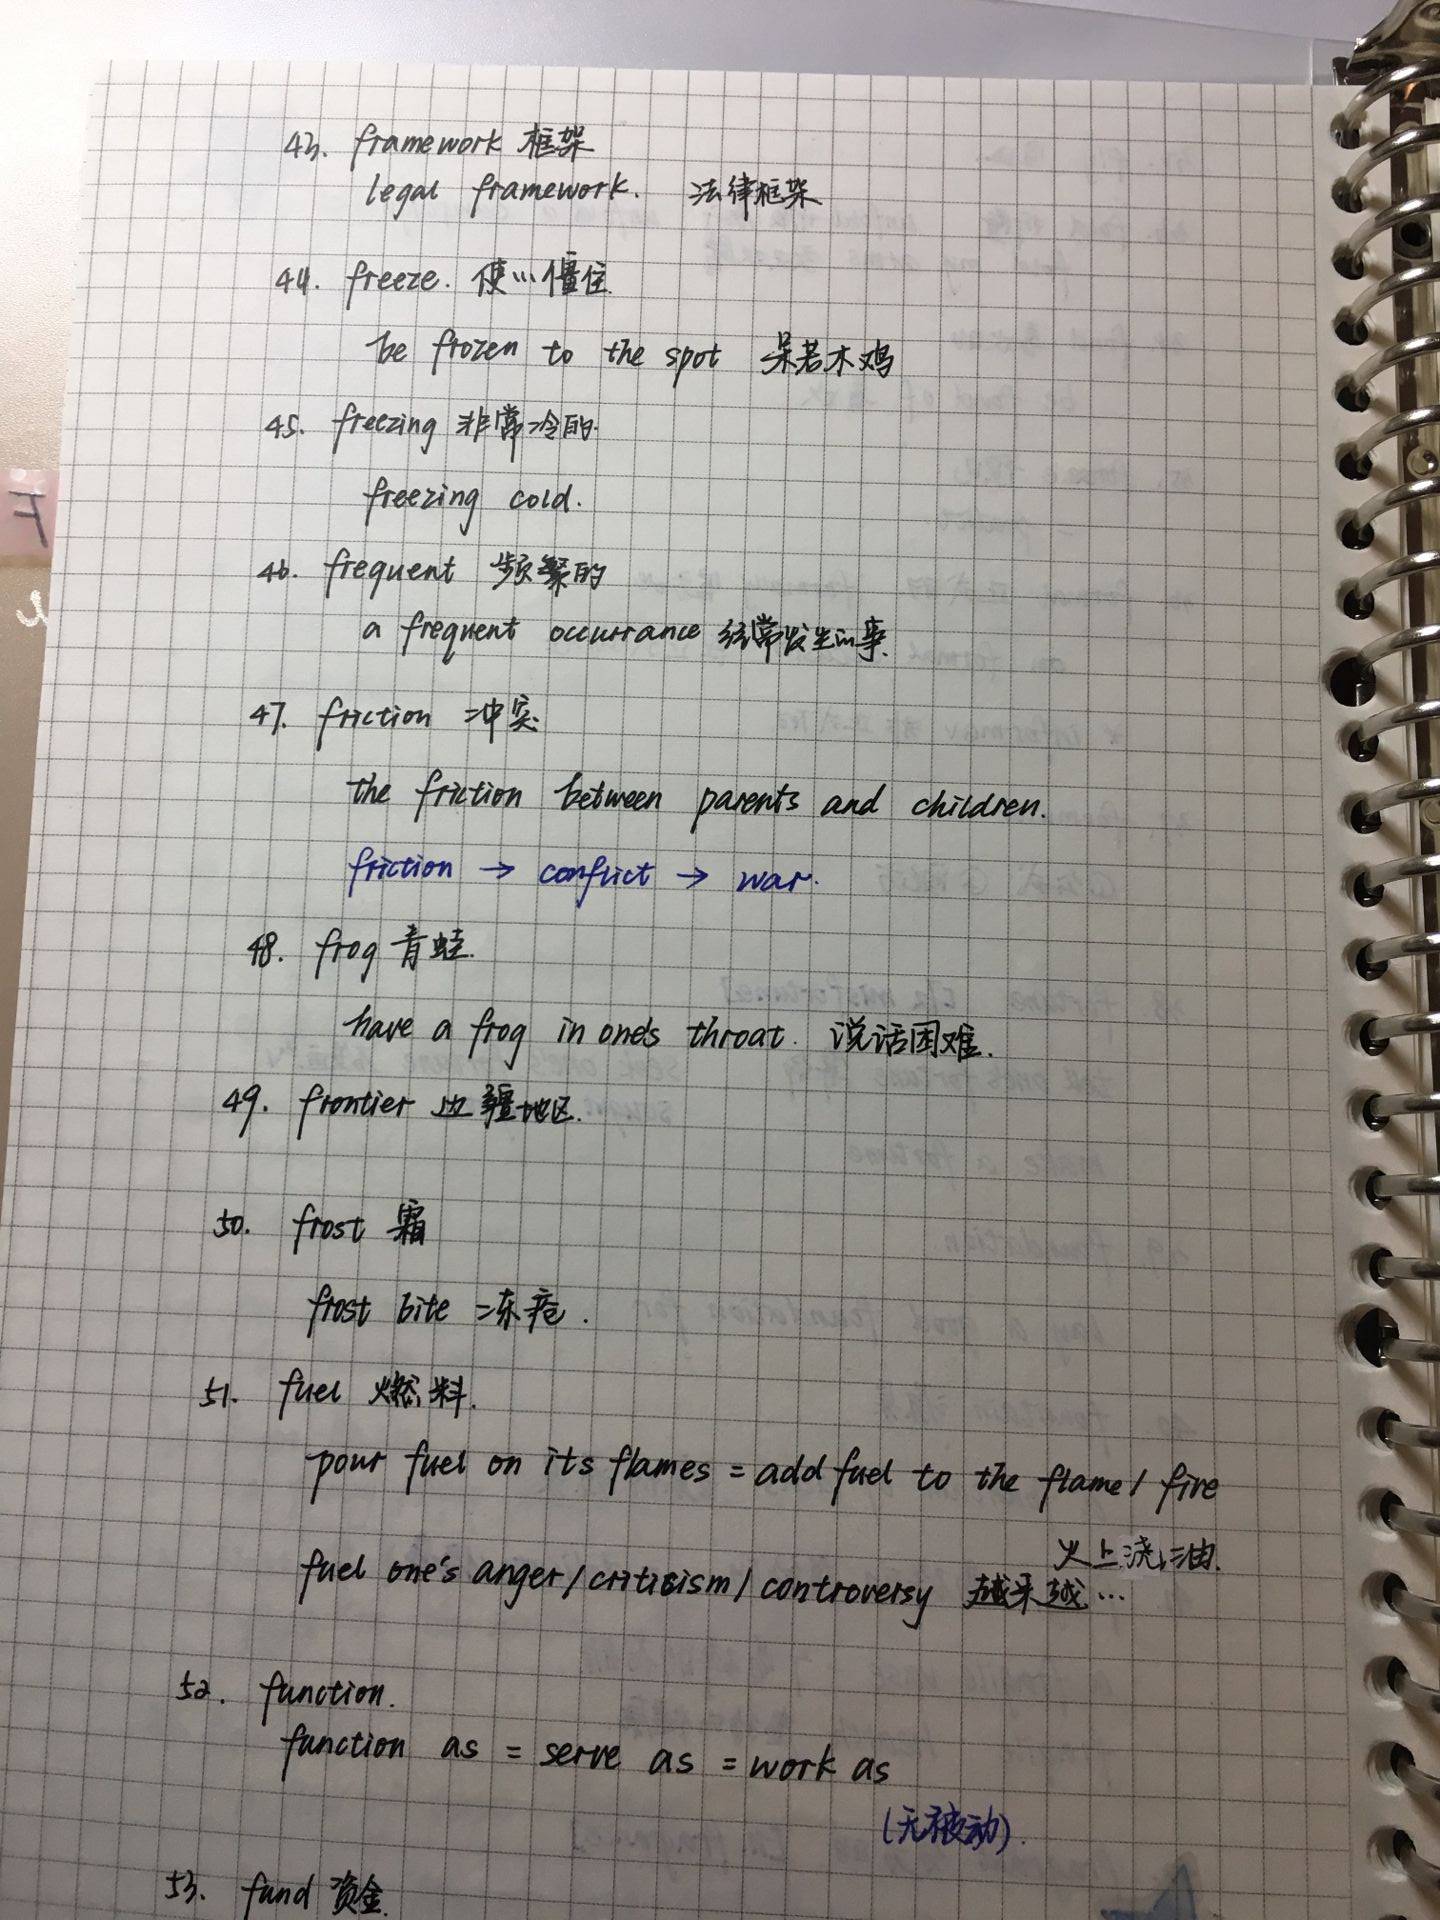 43. framework 框架
legal framework. 法律框架
44. freeze. 使…僵住.
be frozen to the spot 呆若木鸡
45. freezing 非常冷的.
freezing cold.
46. frequent 频繁的
a frequent occurrance 经常发生的事.
47. friction 冲突.
the friction between parents and children.
friction → conflict → war.
48. frog 青蛙.
have a frog in one's throat. 说话困难.
49. frontier 边疆地区.
50. frost 霜
frost bite 冻疮.
51. fuel 燃料.
pour fuel on its flames = add fuel to the flame / fire
火上浇油.
fuel one's anger / criticism / controversy 越来越…
52. function.
function as = serve as = work as
(无被动).
53. fund 资金.